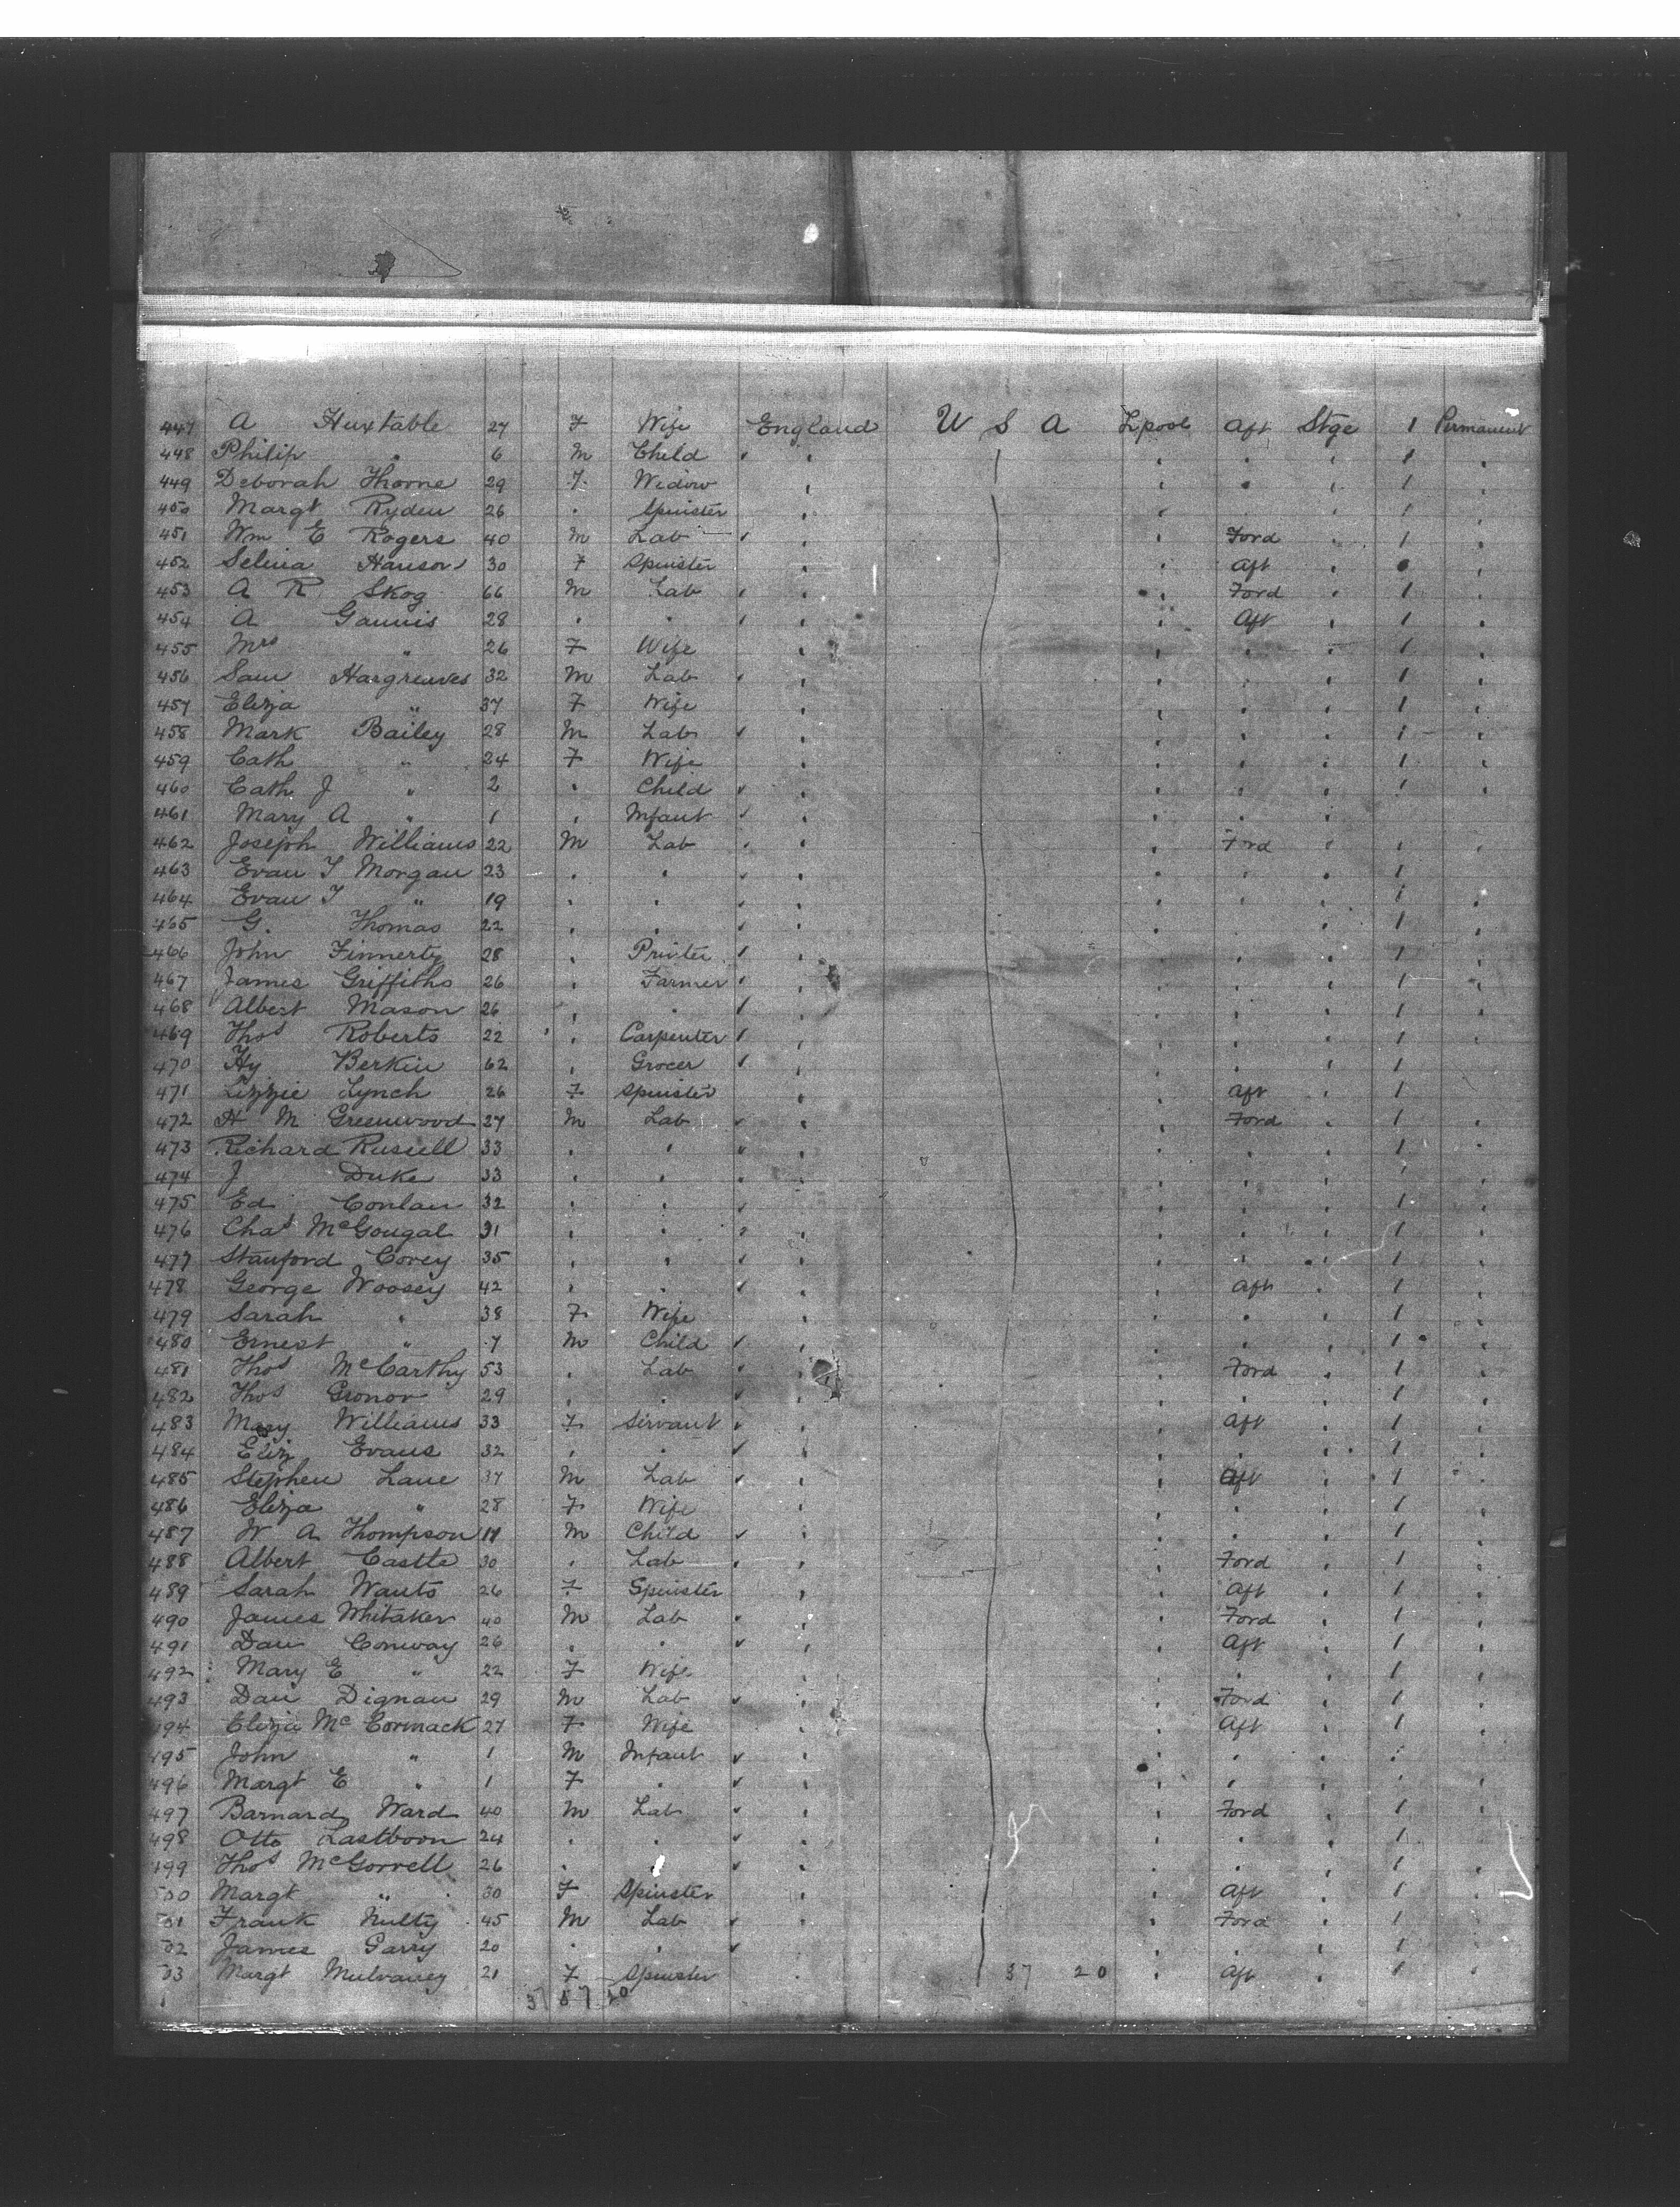 447 A Huxtable 27 F Wife England U S A Lpool Aft Stge 1 Permanent
448 Philip " 6 M Child 1
449 Deborah Thorne 29 F Widow 1
450 Margt Ryden 26 " Spinster 1
451 Wm E Rogers 40 M Lab Ford 1
452 Selina Hanson 30 F Spinster Aft
453 A R Skog 66 M Lab Ford 1
454 A Gannis 28 " " Aft 1
455 Mrs " 26 F Wife 1
456 Sam Hargreaves 32 M Lab 1
457 Eliza " 37 F Wife 1
458 Mark Bailey 28 M Lab 1
459 Cath " 24 F Wife 1
460 Cath J " 2 " Child 1
461 Mary A " 1 " Infant
462 Joseph Williams 22 M Lab Ford 1
463 Evan T Morgan 23 " " 1
464 Evan T " 19 " " 1
465 G. Thomas 22 " " 1
466 John Finnerty 28 " Printer 1
467 James Griffiths 26 " Farmer 1
468 Albert Mason 26 " " 1
469 Thos Roberts 22 " Carpenter 1
470 Hy Berkin 62 " Grocer 1
471 Lizzie Lynch 26 F Spinster Aft 1
472 H M Greenwood 27 M Lab Ford 1
473 Richard Russell 33 " " 1
474 J Duke 33 " " 1
475 Ed Conlan 32 " " 1
476 Chas McGougal 31 " " 1
477 Stanford Corey 35 " " 1
478 George Woosey 42 " " Aft 1
479 Sarah " 38 F Wife 1
480 Ernest " 7 M Child 1
481 Thos McCarthy 53 " Lab Ford 1
482 Thos Gronor 29 " " 1
483 Mary Williams 33 F Servant Aft 1
484 Eliz Evans 32 " " 1
485 Stephen Lane 37 M Lab Aft 1
486 Eliza " 28 F Wife 1
487 W A Thompson 11 M Child 1
488 Albert Castle 30 " Lab Ford 1
489 Sarah Wants 26 F Spinster Aft 1
490 James Whitaker 40 M Lab Ford 1
491 Dan Conway 26 " " Aft 1
492 Mary E " 22 F Wife 1
493 Dan Dignan 29 M Lab Ford 1
494 Eliza McCormack 27 F Wife Aft 1
495 John " 1 M Infant
496 Margt E " 1 F "
497 Barnard Ward 40 M Lab Ford 1
498 Otto Lastboon 24 " " 1
499 Thos McGorrell 26 " 1
500 Margt " 30 F Spinster Aft 1
501 Frank Nulty 45 M Lab Ford 1
502 James Garry 20 " " 1
503 Margt Mulvaney 21 F Spinster 37 20 Aft 1
37 57 20